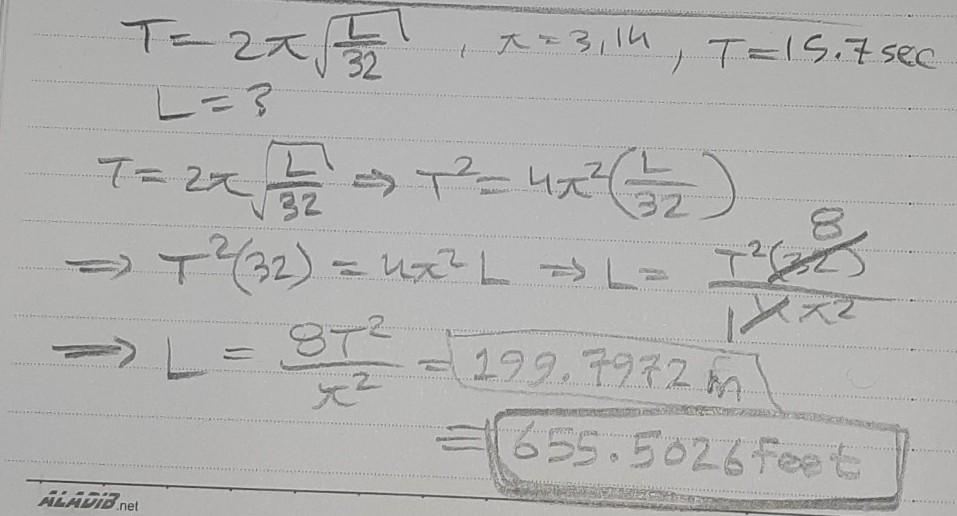 T = 2π√(L/32) , π = 3,14 , T = 15.7 sec
L = ?
T = 2π√(L/32) ⇒ T² = 4π²(L/32)
⇒ T²(32) = 4π² L ⇒ L = T²(32) 8 / 1 4 π²
⇒ L = 8T²/π² = 199.7972 m
= 655.5026 feet
ALADIB.net